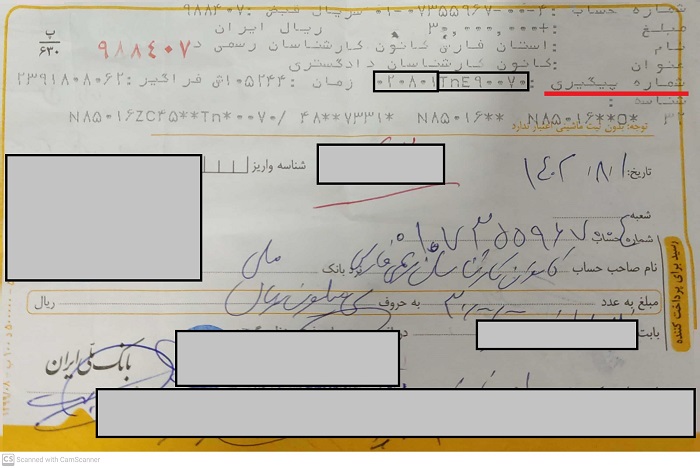 شماره حساب :۰۱۰۷۳۵۵۹۶۷۰۰۴ سریال قبض :۹۸۸۴۰۷
مبلغ :+۳۰,۰۰۰,۰۰۰ ریال ایران
نام : استان فارس کانون کارشناسان رسمی د
عنوان : کانون کارشناسان دادگستری
شماره پیگیری : ۰۲۰۸۰۱TnE۹۰۰۷۰ زمان :۱۰۵۲۴۴ش فراگیر :۲۳۹۱۸۰۸۰۶۲
شناسه :
۹۸۸۴۰۷
ب
۶۳۰
توجه: بدون ثبت ماشینی اعتبار ندارد
تاریخ: ۱۴۰۲/۸/۱
شناسه واریز
شعبه
شماره حساب ۰۱۰۷۳۵۵۹۶۷۰۰۴
نام صاحب حساب کانون کارشناسان رسمی فارس نزد بانک ملی
مبلغ به عدد به حروف سی میلیون ریال ریال
بابت
رسید برای پرداخت کننده
بانک ملی ایران
CS Scanned with CamScanner